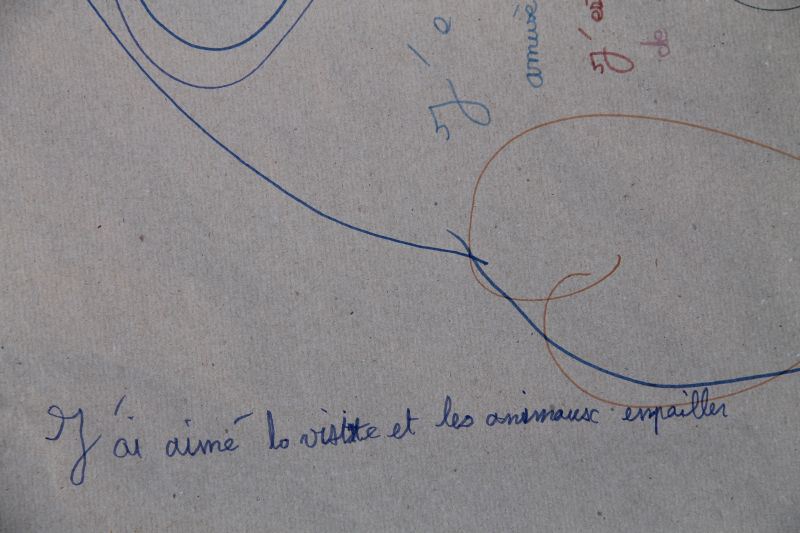 J'ai aimé la visite et les animaux empailler
J'e
amusé
J'ei
de